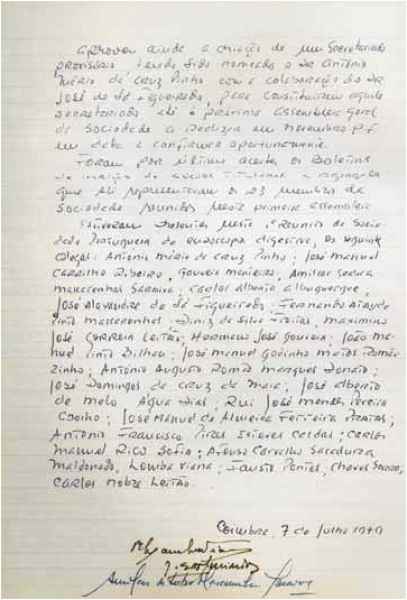 Aprovou ainda a criação de um Secretariado
provisório tendo sido nomeados o Dr António
Mário da Cruz Pinho com a colaboração do Dr
José de Sá Figueiredo, para constituirem aquele
secretariado até à próxima Assembleia Geral
da Sociedade a realizar em Novembro p.f.
em data a confirmar oportunamente.
Foram por último aceites os Boletins
de
que até representaram os 23 membros da
Sociedade reunidos nesta primeira assembleia
Estiveram presentes nesta 1ª Reunião da Socie-
dade Portuguesa de Endoscopia digestiva, os seguintes
colegas: António Mário da Cruz Pinho; José Manuel
Carrilho Ribeiro, Gouveia Monteiro, Amilcar
Mascarenhas Saraiva; Carlos Alberto Albuquerque,
José Alexandre de Sá Figueiredo; Fernando
Pinto Mascarenhas; Diniz da Silva Freitas, Maximino
José Correia Leitão; Hermano José Gouveia; João Ma-
nuel Pinto; José Manuel Godinho Matos Romão-
zinho; António Augusto Roma Marques Donato;
José Domingos da Cruz de Maia; José Alberto
de Melo Agua Dias, Rui José Mendes Pereira
Coelho; José Manuel de Almeida Ferreira Freitas;
António Francisco Pires Esteves Caldas; Carlos
Manuel Rico Sofia; Afonso Carvalho Sacadura
Maldonado, Lomba Viana; Fausto Pontes, Chaves
Carlos Nobre Leitão.
Coimbra, 7 de Julho 1979